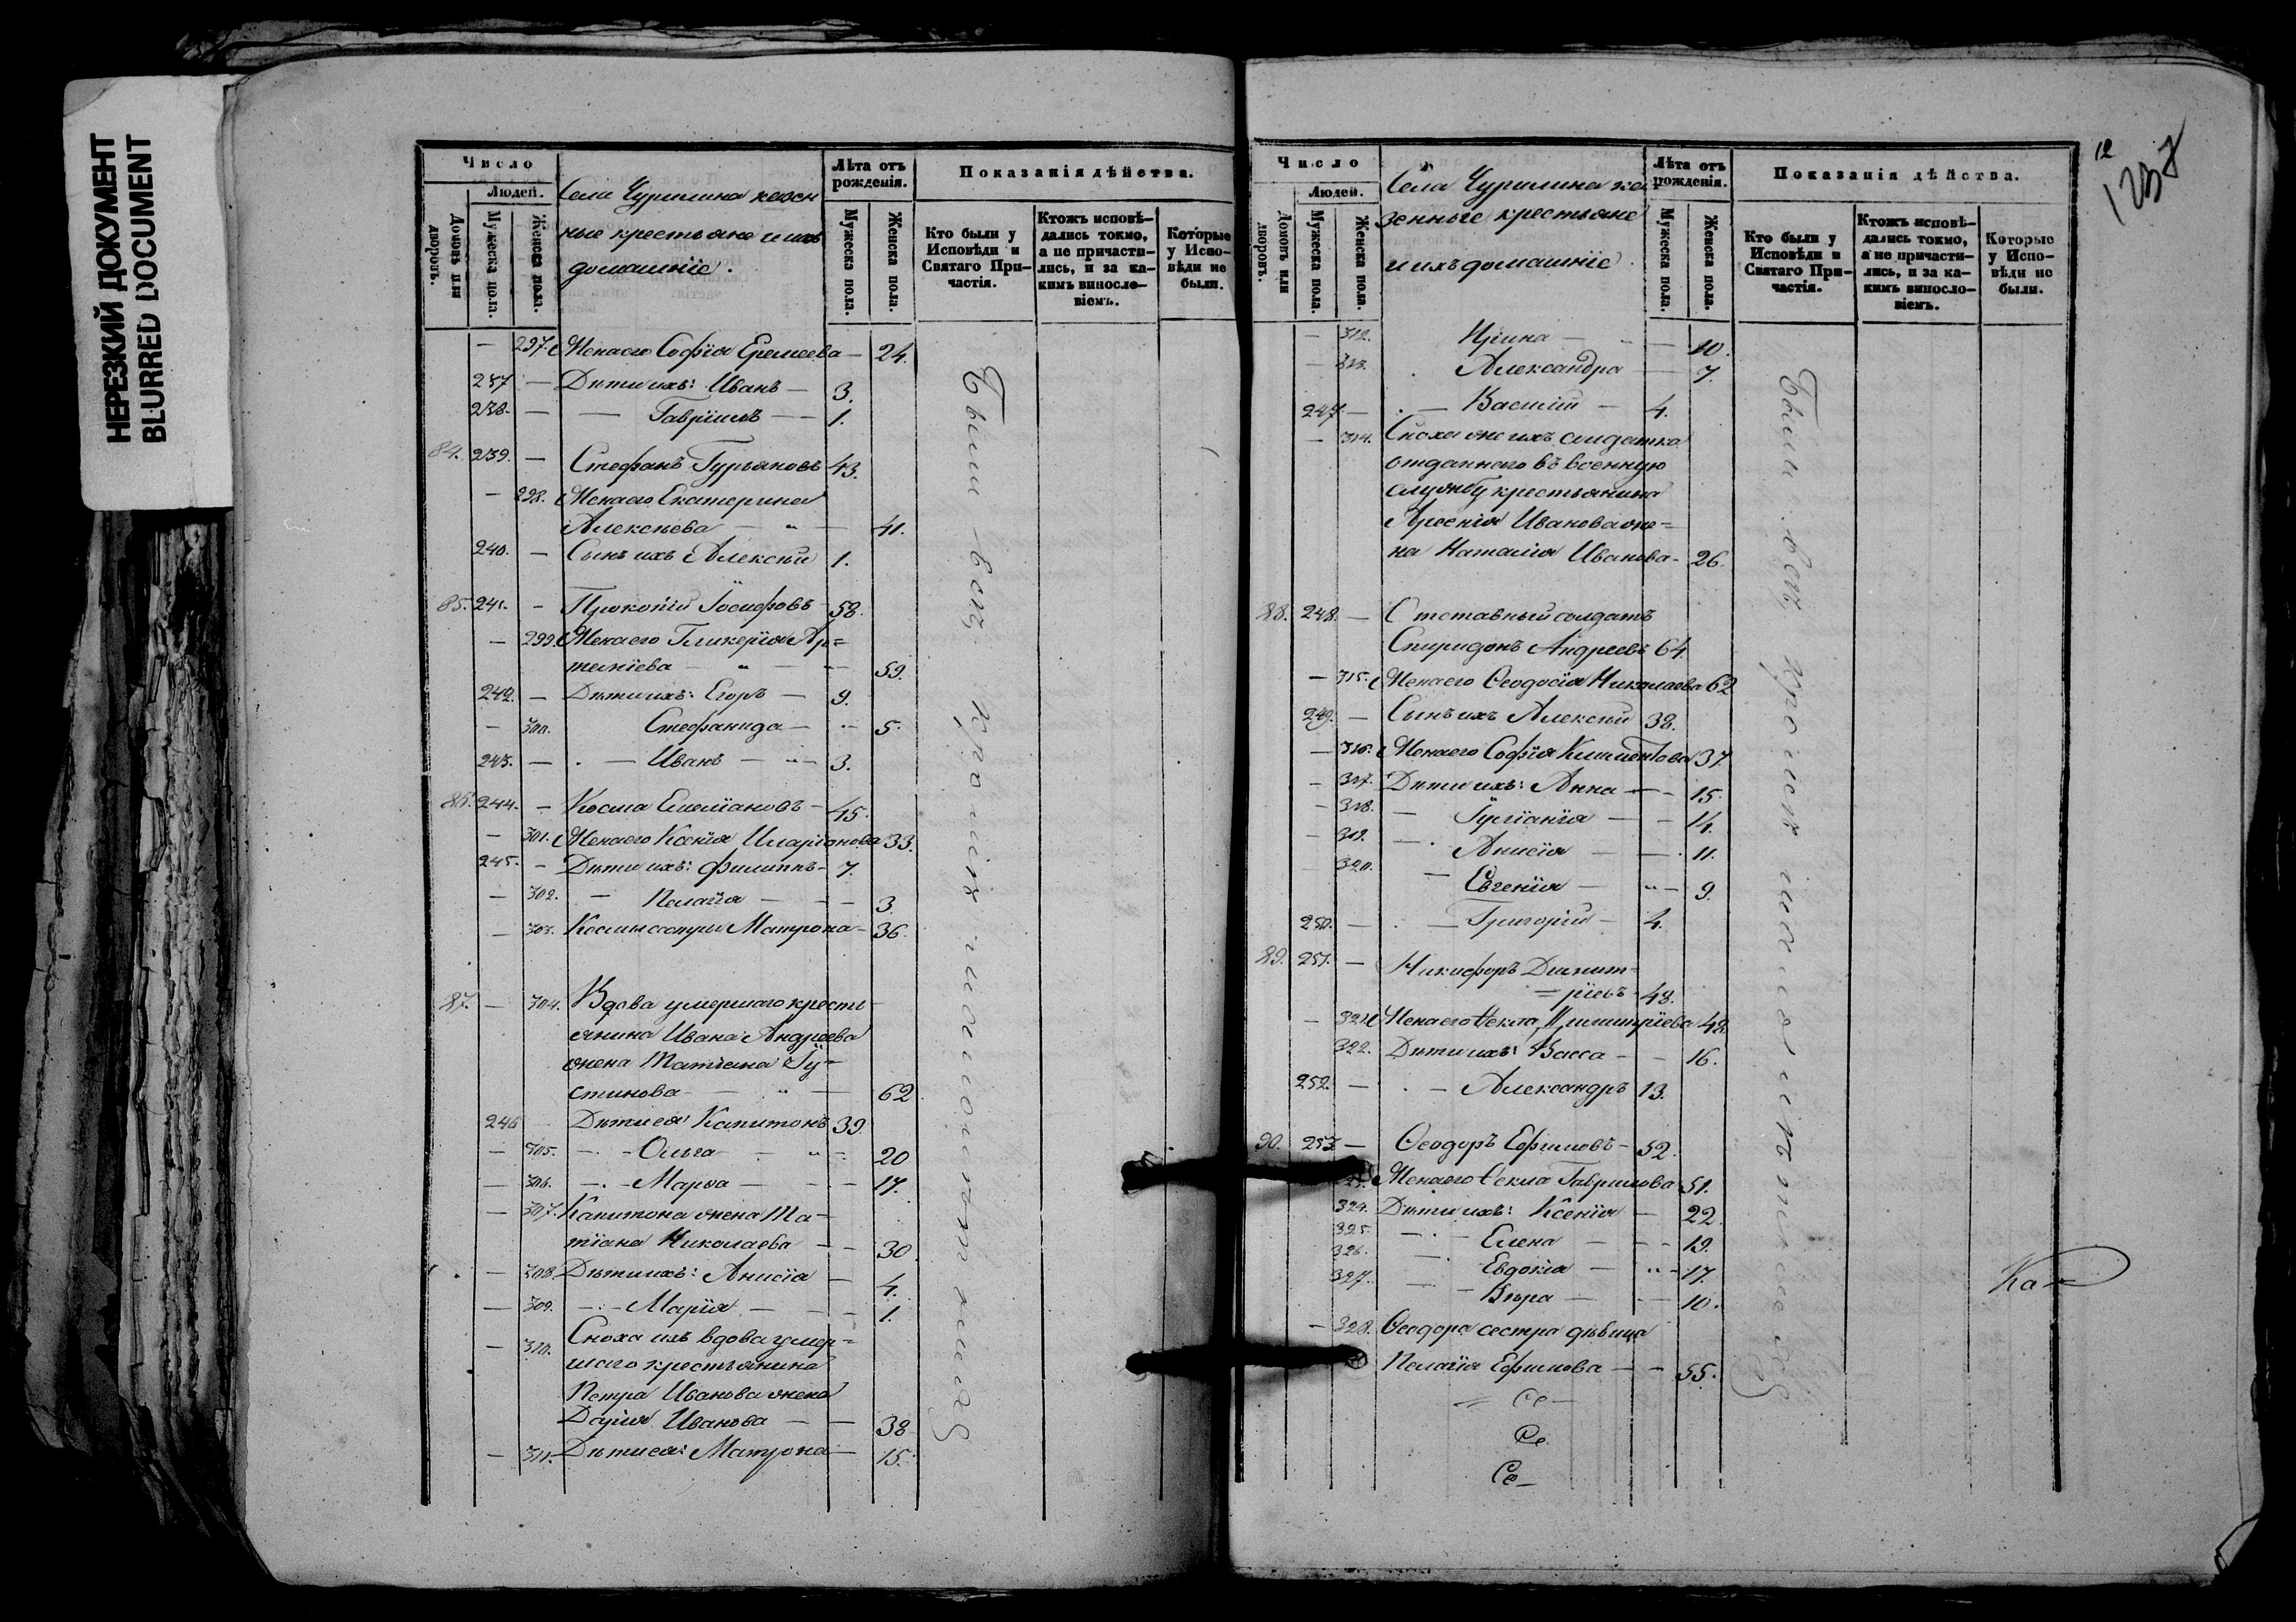 НЕРЕЗКИЙ ДОКУМЕНТ
BLURRED DOCUMENT
Число
Людей.
Домовъ или дворовъ.
Мужеска пола.
Женска пола.
Села Чурилина казен
ные крестьяне и ихъ
домашніе.
Лѣта отъ рожденія.
Мужеска пола.
Женска пола.
Показанія дѣйства.
Кто были у Исповѣди и Святаго Причастія.
Ктожъ исповѣдались токмо, а не причастились, и за какимъ винословіемъ.
Которые у Исповѣди не были.
— 297. Жена его Софія Еремеева — 24.
237 — Дѣти ихъ: Иванъ — 3.
238. — — Гавріилъ — — 1.
84. 239. — Стефанъ Гурьяновъ 43.
— 298. Жена его Екатерина
Алексѣева — " — 41.
240. — Сынъ ихъ Алексѣй 1.
85. 241. — Прокопій Іосифовъ 58.
— 299. Жена его Гликерія Ар=
теміева — " — — 59.
242. — Дѣти ихъ: Егоръ — 9.
— 300. Стефанида — " 5.
243. — . — Иванъ — " — 3.
86. 244. — Косма Емеліановъ — 45.
— 301. Жена его Ксенія Иларіонова 33.
245. — Дѣти ихъ: Филиппъ — 7.
— 302. — Пелагія — — — 3.
— 303. Космы сестра Матрона — 36.
87. — 304. Вдова умершаго кресть
янина Ивана Андреева
жена Татіана Іу=
стинова — " — 62
246 Дѣти ея: Капитонъ 39.
— 305. —.— Ольга — " — 20
— 306. —.— Марѳа — — — 17.
— 307. Капитона жена Та=
тіана Николаева — — 30.
— 308. Дѣти ихъ: Анисія — 4.
— 309. —.— Марія — — — 1.
— 310. Сноха ихъ вдова умер=
шаго крестьянина
Петра Иванова жена
Дарія Иванова — — 38
— 311. Дѣти ея: Матрона — 15.
Были всѣ
12
1237
Число
Людей.
Домовъ или дворовъ.
Мужеска пола.
Женска пола.
Села Чурилина ка-
зенные крестьяне
и ихъ домашніе.
Лѣта отъ рожденія.
Мужеска пола.
Женска пола.
Показанія дѣйства.
Кто были у Исповѣди и Святаго Причастія.
Ктожъ исповѣдались токмо, а не причастились, и за какимъ винословіемъ.
Которые у Исповѣди не были.
— 312. Ирина — " — 10.
— 313. . Александра — 7.
247 — . — Василій — 4.
— 314. Сноха же ихъ солдатка
отданнаго въ военную
службу крестьянина
Арсенія Иванова же=
на Наталія Иванова — 26.
88. 248. — Отставный солдатъ
Спиридонъ Андреевъ 64.
— 315. Жена его Ѳеодосія Николаева 62
249. — Сынъ ихъ Алексѣй 38.
— 316. Жена его Софія Климентова 37.
— 317. Дѣти ихъ: Анна — — 15.
— 318. — Іуліанія — — 14.
— 319. —. Анисія — — 11.
320. — Евгенія — " — 9.
250. — . — Григорій — 4.
89. 251. — Никифоръ Димит=
=ріевъ — 48.
— 321. Жена его Ѳекла Димитріева 48.
322. Дѣти ихъ: Васса — — 16.
252. — . — Александръ 13.
90. 253 — Ѳеодоръ Ефимовъ — 52.
323. Жена его Ѳекла Гаврилова 51.
324. Дѣти ихъ: Ксенія — 22.
325. —.— Елена — — — 19.
326. —. Евдокія — " — 17.
327. — — Вѣра — — 10.
— 328. Ѳеодора сестра дѣвица
Пелагія Ефимова — — 55.
Были всѣ
Ка